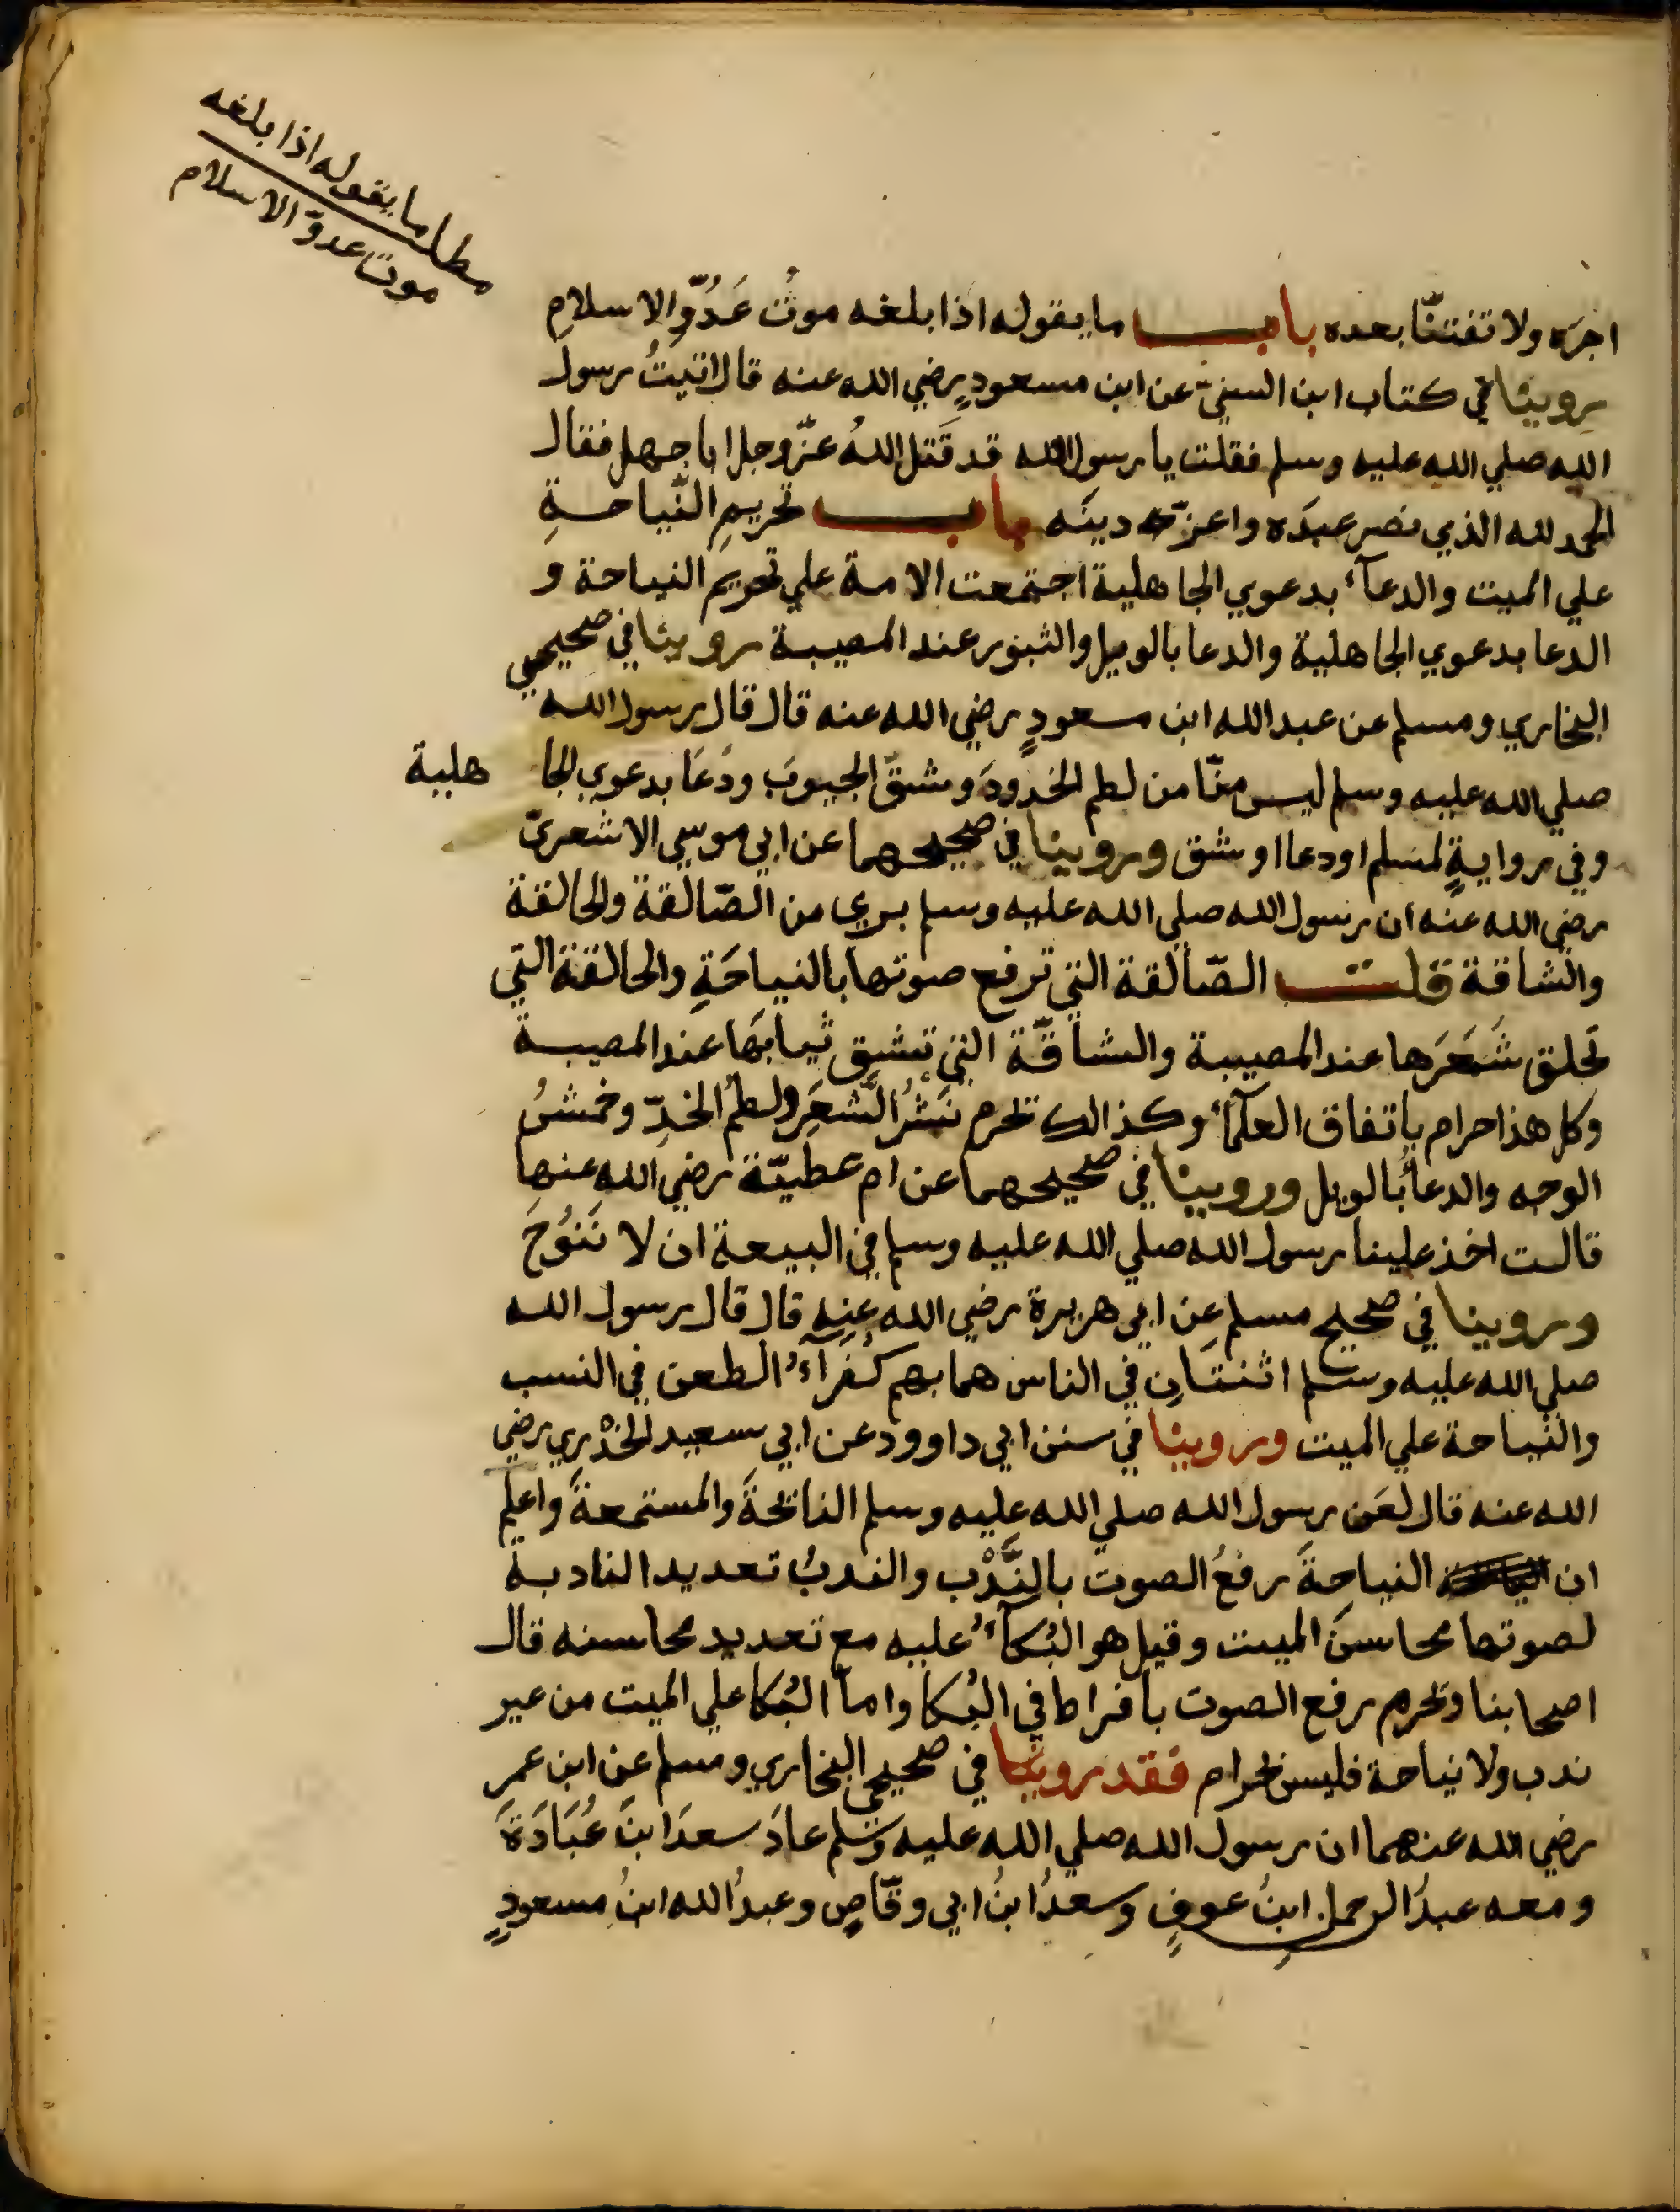 مطلب ما يقوله اذا بلغه
موت عدوّ الاسلام
اجرَه ولا تفتنّا بعده باب ما يقوله اذا بلغه موتُ عَدُوِّ الاسلامِ
روينا في كتاب ابن السنيّ عن ابن مسعودٍ رضي الله عنه قال اتيتُ رسول
الله صلي الله عليه وسلم فقلت يا رسول الله قد قَتل اللهُ عزّوجل ابا جهل فقال
الحمد لله الذي نصر عبدَه واعزّ دينَه باب تحريمِ النّياحةِ
علي الميت والدعآء بدعوي الجاهلية اجتمعت الامة علي تحريم النياحة و
الدعا بدعوي الجاهلية والدعا بالويل والثبور عند المصيبة روينا في صحيحي
البخاري ومسلم عن عبد الله ابن مسعودٍ رضي الله عنه قال قال رسول الله
صلي الله عليه وسلم ليس منّا من لطم الخدودَ وشقّ الجيوبَ ودَعَا بدعوي الجا هلية
وفي روايةٍ لمسلم اودعا اوشق وروينا في صحيحهما عن ابي موسي الاشعريّ
رضي الله عنه ان رسول الله صلي الله عليه وسلم بري من الصّالقة والحالقة
والشاقة قلت الصّالقة التي ترفع صوتها بالنياحَةِ والحالقة التي
تحلق شَعَرَها عند المصيبة والشاقّة التي تشق ثيابَها عند المصيبة
وكل هذا حرام باتفاق العلمآء وكذالك تحرم نَشْرُ الشَّعَرِ ولطمُ الخدِّ وخمشُ
الوجه والدعأ بالويل وروينا في صحيحهما عن ام عطيّة رضي الله عنها
قالت اخذ علينا رسول الله صلي الله عليه وسلم في البيعة ان لا نَنُوحَ
وروينا في صحيح مسلم عن ابي هريرة رضي الله عنه قال قال رسول الله
صلي الله عليه وسلم اثنتانِ في الناس هما بهم كفرآءُ الطعن في النسب
والنياحة علي الميت وروينا في سنن ابي داوود عن ابي سعيد الخدْري رضي
الله عنه قال لعَن رسول الله صلي الله عليه وسلم النائحَةَ والمستمعةَ واعلم
ان النياحةَ رفعُ الصوت بالنَّدْب والندبُ تعديد النادبة
لصوتها محاسنَ الميت وقيل هو البُكآءُ عليه مع تعديد محاسنه قال
اصحابنا وتحرم رفع الصوت بافراط في البُكا واما البُكا علي الميت من عير
ندب ولا نياحة فليس بحرام فقد روينا في صحيحي البخاري ومسلم عن ابن عمر
رضي الله عنهما ان رسول الله صلي الله عليه وسلم عادَ سعدَ ابنَ عُبَادَةَ
ومعه عبدُ الرحمن ابنُ عوفٍ وسعدُ ابنُ ابي وقّاصٍ وعبدُ الله ابنُ مسعودٍ